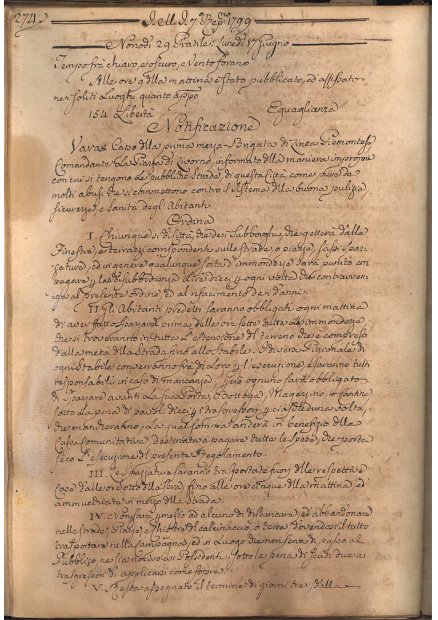 274.
dell' 1799
Nonodì 29 Pratile: Lunedì 17 Giugno
Tempo frà chiaro, e oscuro, e Vento
Alle ore 9 della mattina è stato pubblicato, ed affissato
nei soliti Luoghi quanto appo
154 Libertà Eguaglianza
Notificazione
Varas Capo della prima mezza-Brigata di Linea Piemontese
Comandante La Piazza di Livorno, informato della maniera impropria
con cui si tengono Le pubbliche Strade di questa Città, come pure da
molti abusi che si commettono contro il sistema della buona pulizia,
sicurezza, e Sanità degl'Abitanti
Ordina
I. Chiunque sì di Città, che dei Subborghi, che getterà dalle
Finestre, e terrazzi corrispondenti sulle strade, o piazze,
ed in genere qualunque sorta d'immondezze sarà punito con
pagare Lire dieci ogni volta che contravven-
al presente ordine, ed al rifacimento dei danni.
II Gli Abitanti predetti saranno obbligati ogni mattina
di aver fatto spazzare prima delle ore sette tutte Le immondezze
che si troveranno in tutta L'estensione di terreno che è compreso
dalla metà della strada fino allo Stabile. I diversi Pigionali di
ogni Stabile converranno frà di Loro l'esecuzione, e saranno tutti
responsabili in caso di mancanza ognuno sarà obbligato
di spazzare avanti La sua Porta, Bottega, Magazzino, o Cantine
sotto La pena di paoli dieci trasgressori ciascheduna volta,
che mancheranno, La qual somma anderà in benefizio della
Cassa Comunitativa, destinata a pagare tutte Le Spese, che porta
seco L'esecuzione del presente Regolamento.
III. Le Spazzature saranno trasportate fuori delle respettive
Case dalle ore otto della sera, fino alle ore cinque della mattina, ed
ammucchiate in mezzo della strada.
IV. Non sarà permesso ad alcuno di scaricare, ed abbandonare
nelle strade, Piazze, calcinaccio o terra dovendosi il tutto
trasportare nella campagna, ed in Luogo che non serva di passo al
Pubblico, nè sia nocivo ai Possidenti, sotto La pena di Scudi due ai
trasgressori di applicarsi come sopra.
V. Resta assegnato il termine di giorni tre, dalla